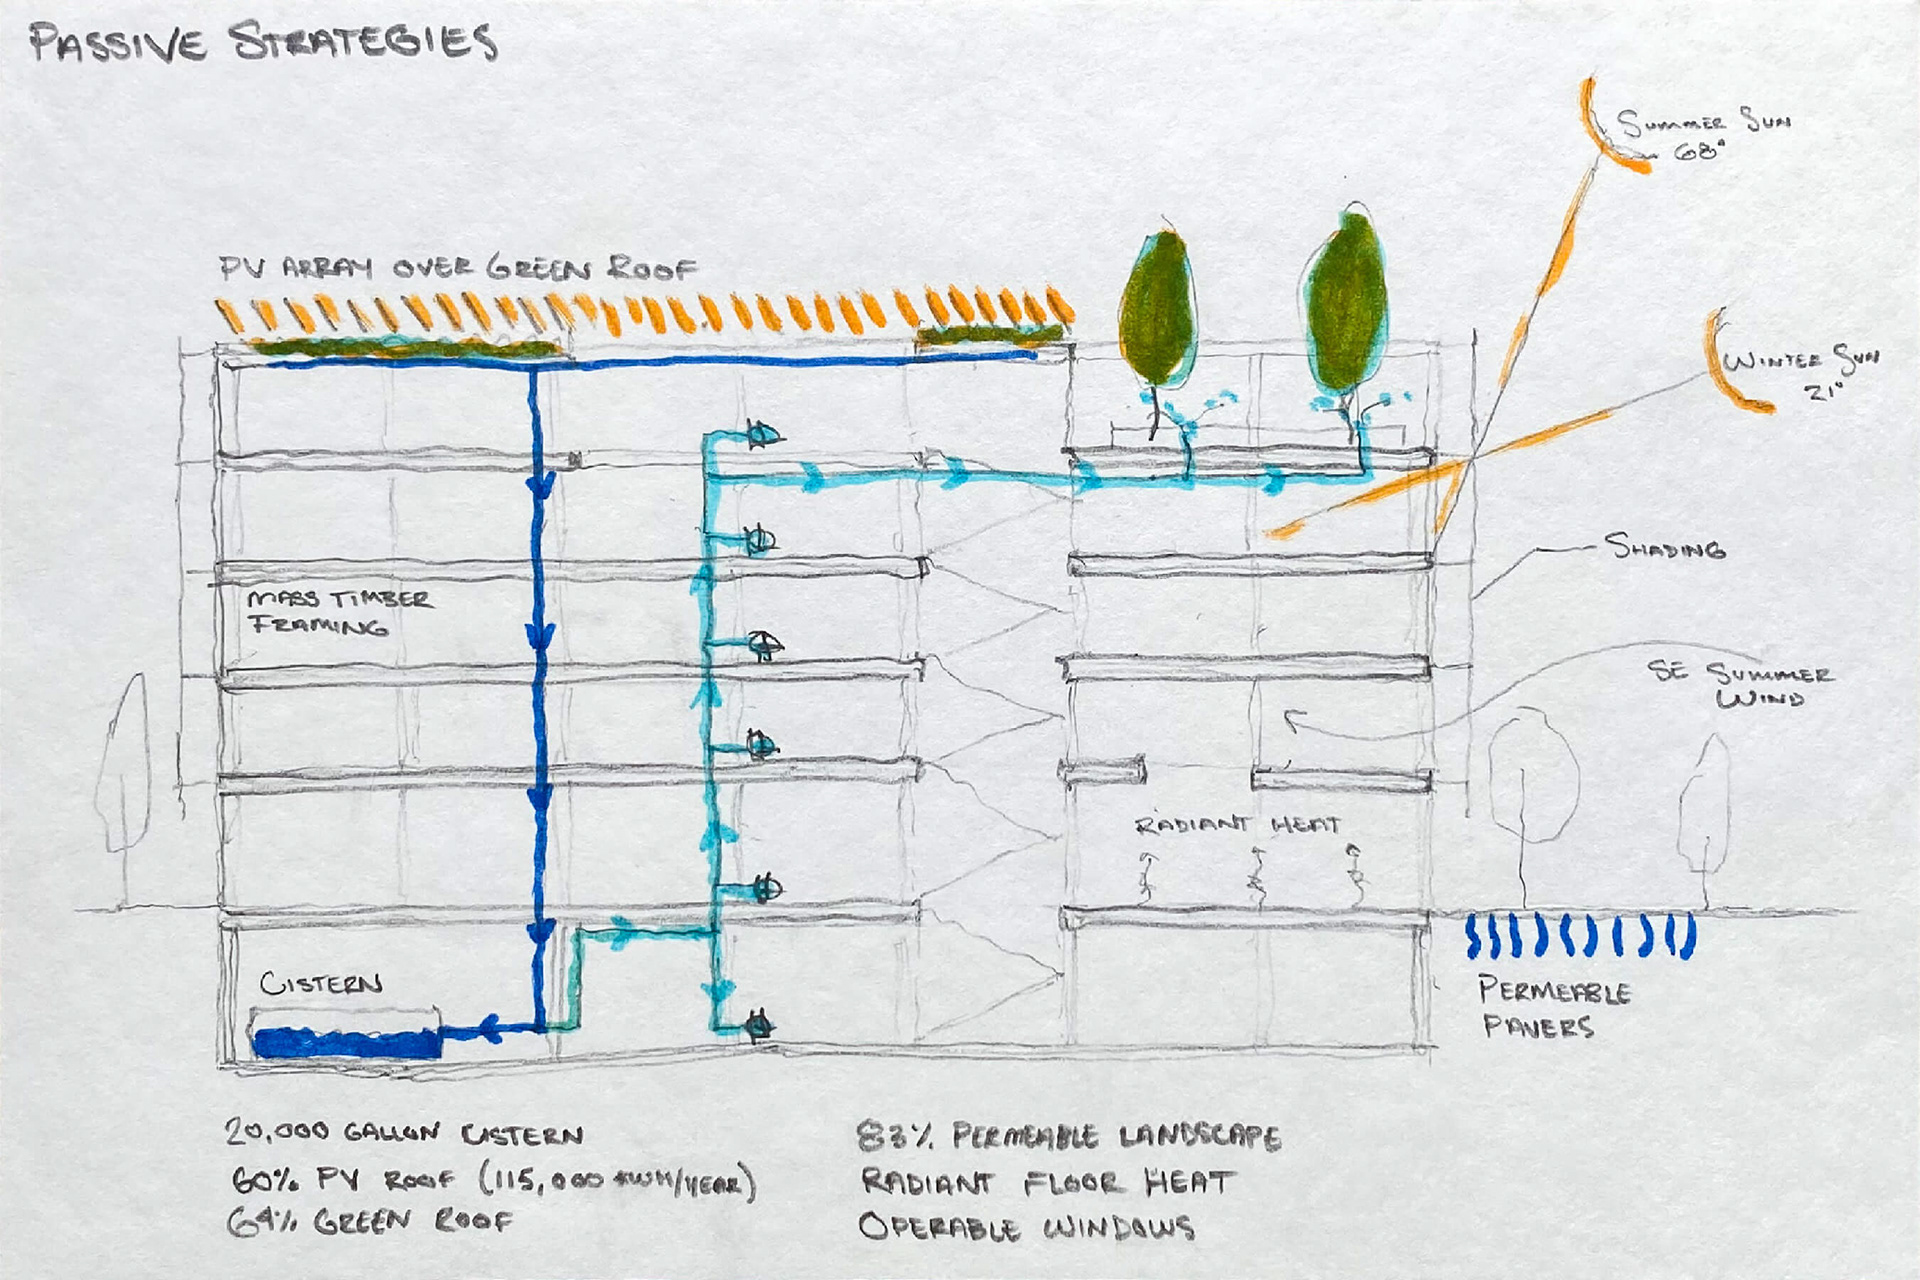 PASSIVE STRATEGIES
SUMMER SUN
68°
PV ARRAY OVER GREEN ROOF
WINTER SUN
21°
SHADING
MASS TIMBER
FRAMING
SE SUMMER
WIND
RADIANT HEAT
CISTERN
PERMEABLE
PAVERS
20,000 GALLON CISTERN
60% PV ROOF (115,000 KWH/YEAR)
64% GREEN ROOF
83% PERMEABLE LANDSCAPE
RADIANT FLOOR HEAT
OPERABLE WINDOWS